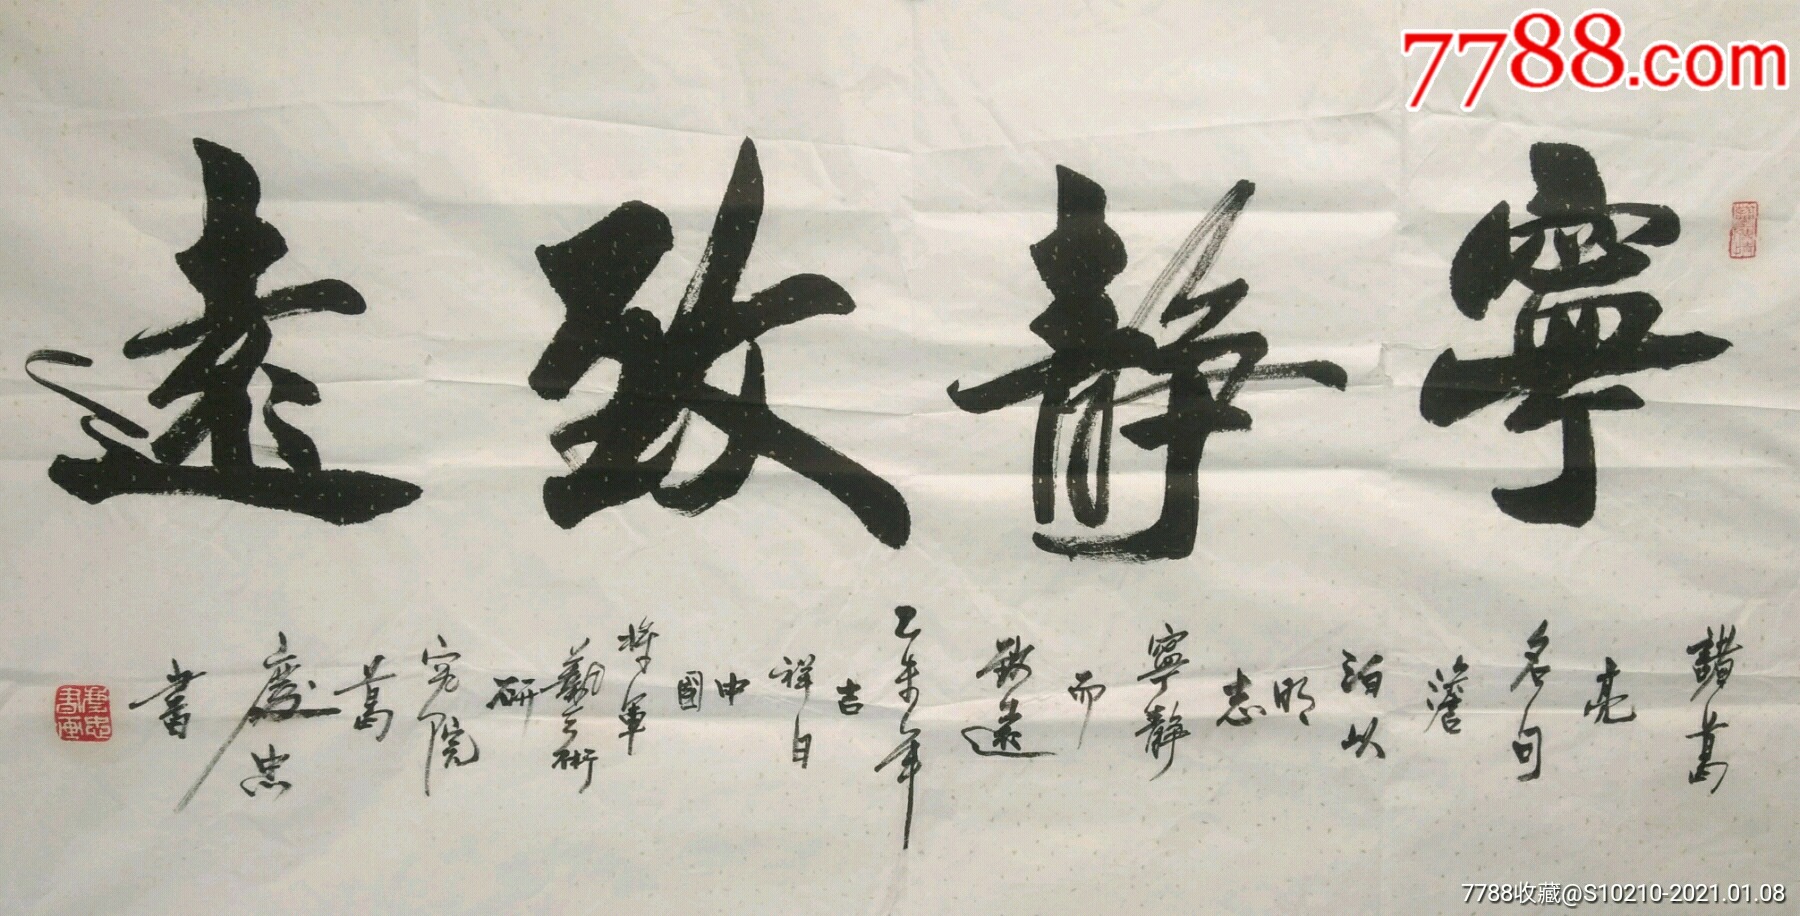 7788.com
寧靜致遠
諸葛亮名句澹泊以明志寧靜而致遠乙未年吉祥日中國將軍藝術研究院葛慶忠書
7788收藏@S10210-2021.01.08